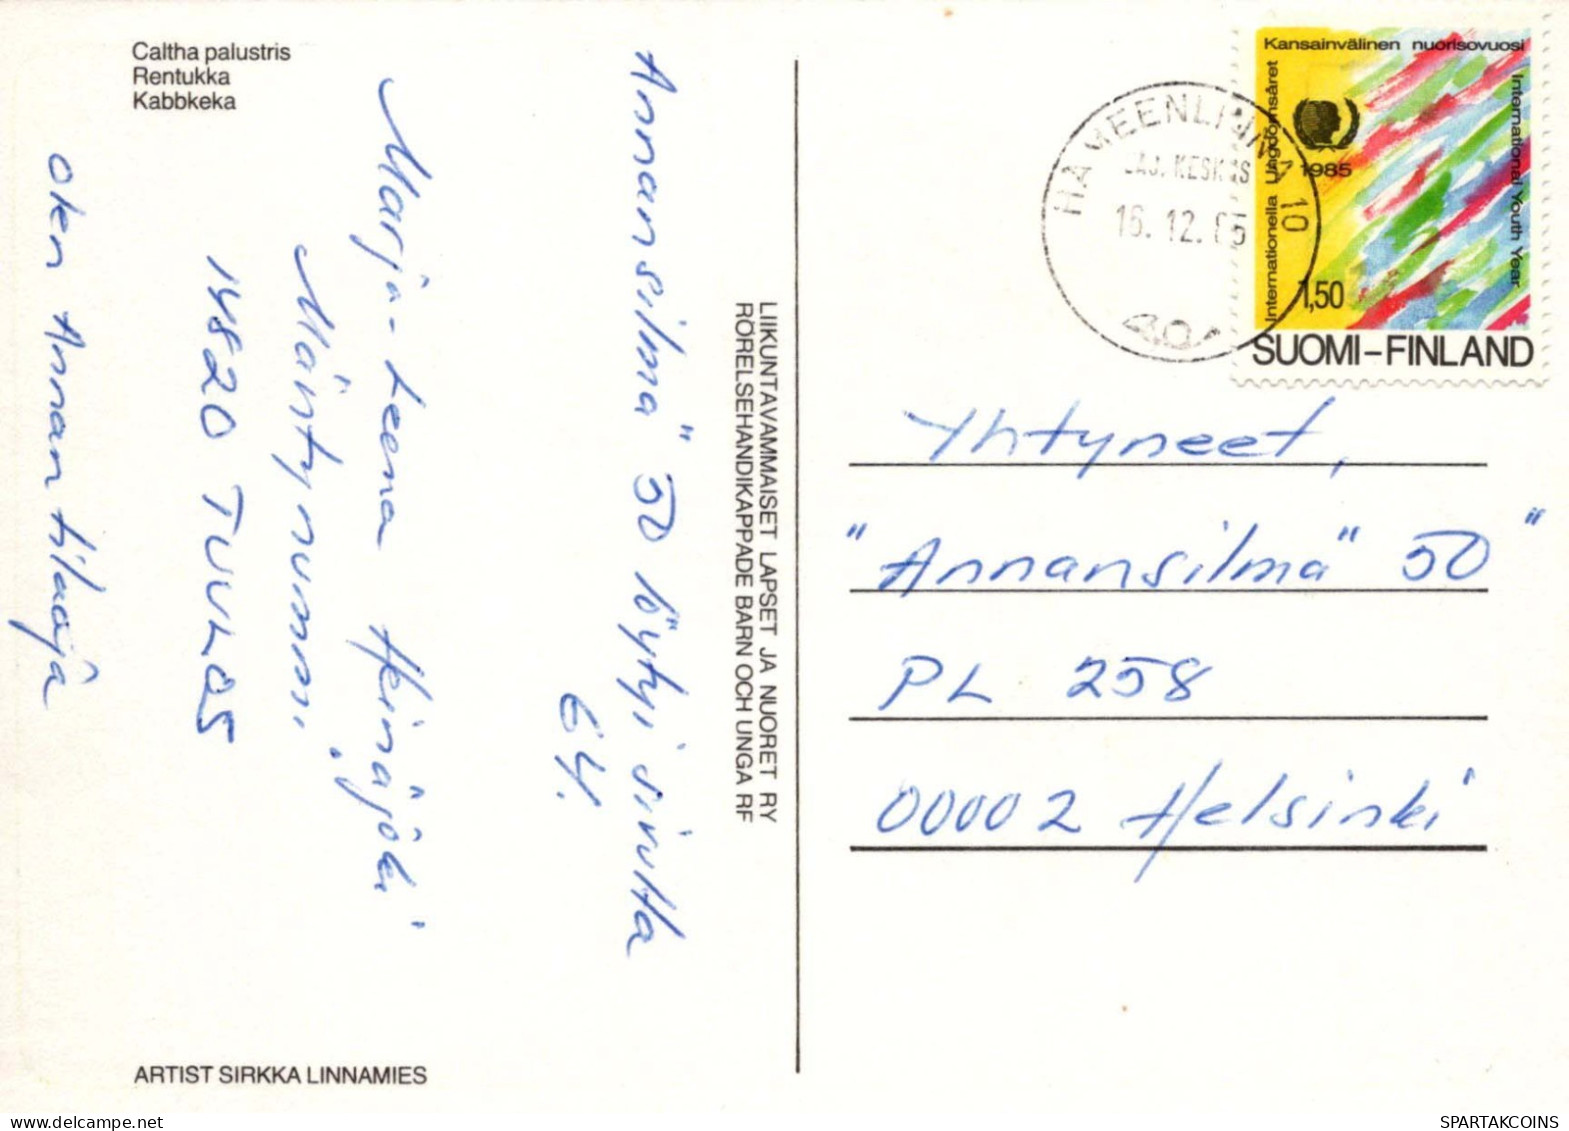 Caltha palustris
Rentukka
Kabbkeka
Annansilmä" 50 löytyi sivulta
64.
Marja-Leena Heinäjoki
Mäntynummi
14820 TUULOS
olen Annan tilaaja
LIIKUNTAVAMMAISET LAPSET JA NUORET RY
RÖRELSEHANDIKAPPADE BARN OCH UNGA RF
ARTIST SIRKKA LINNAMIES
HÄMEENLINNA 10
LAJ. KESKUS
16. 12. 85
Kansainvälinen nuorisovuosi
Internationella Ungdomsåret
International Youth Year
1985
1,50
SUOMI-FINLAND
Yhtyneet,
"Annansilmä" 50"
PL 258
00002 Helsinki
SPARTAKCOINS
SPARTAKCOINS.COM